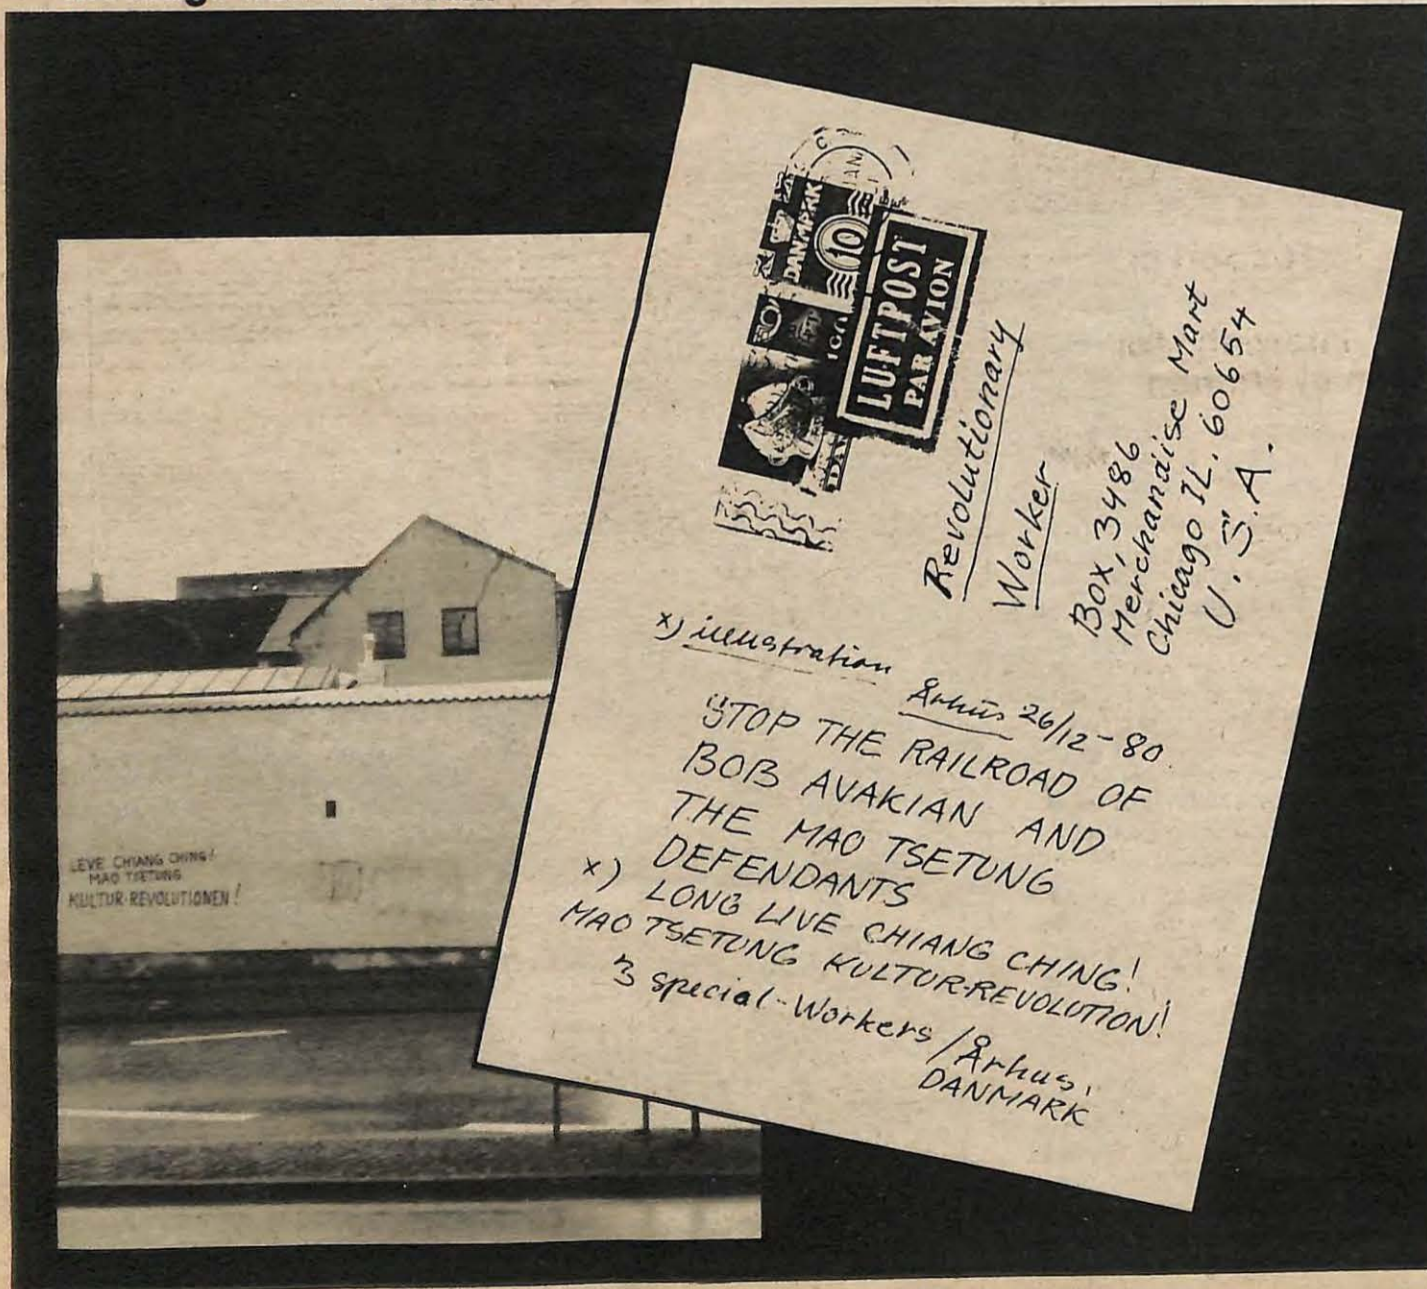 LEVE CHIANG CHING!
MAO TSETUNG
KULTUR-REVOLUTIONEN!
DANMARK
10
100
LUFTPOST
PAR AVION
Revolutionary
Worker
Box, 3486
Merchandise Mart
Chicago IL. 60654
U.S.A.
x) illustration
Århus 26/12-80.
STOP THE RAILROAD OF
BOB AVAKIAN AND
THE MAO TSETUNG
DEFENDANTS
x) LONG LIVE CHIANG CHING!
MAO TSETUNG KULTUR-REVOLUTION!
3 special-Workers/Århus,
DANMARK